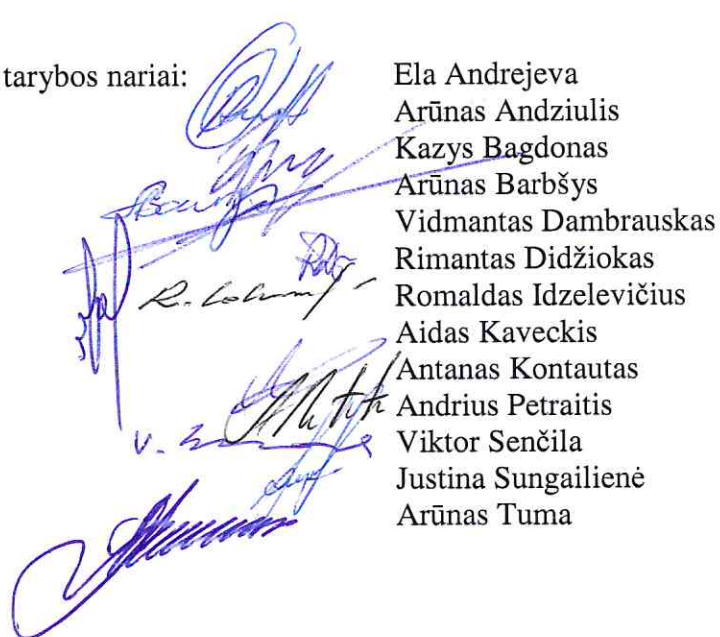 tarybos nariai: Ela Andrejeva
Arūnas Andziulis
Kazys Bagdonas
Arūnas Barbšys
Vidmantas Dambrauskas
Rimantas Didžiokas
Romaldas Idzelevičius
Aidas Kaveckis
Antanas Kontautas
Andrius Petraitis
Viktor Senčila
Justina Sungailienė
Arūnas Tuma